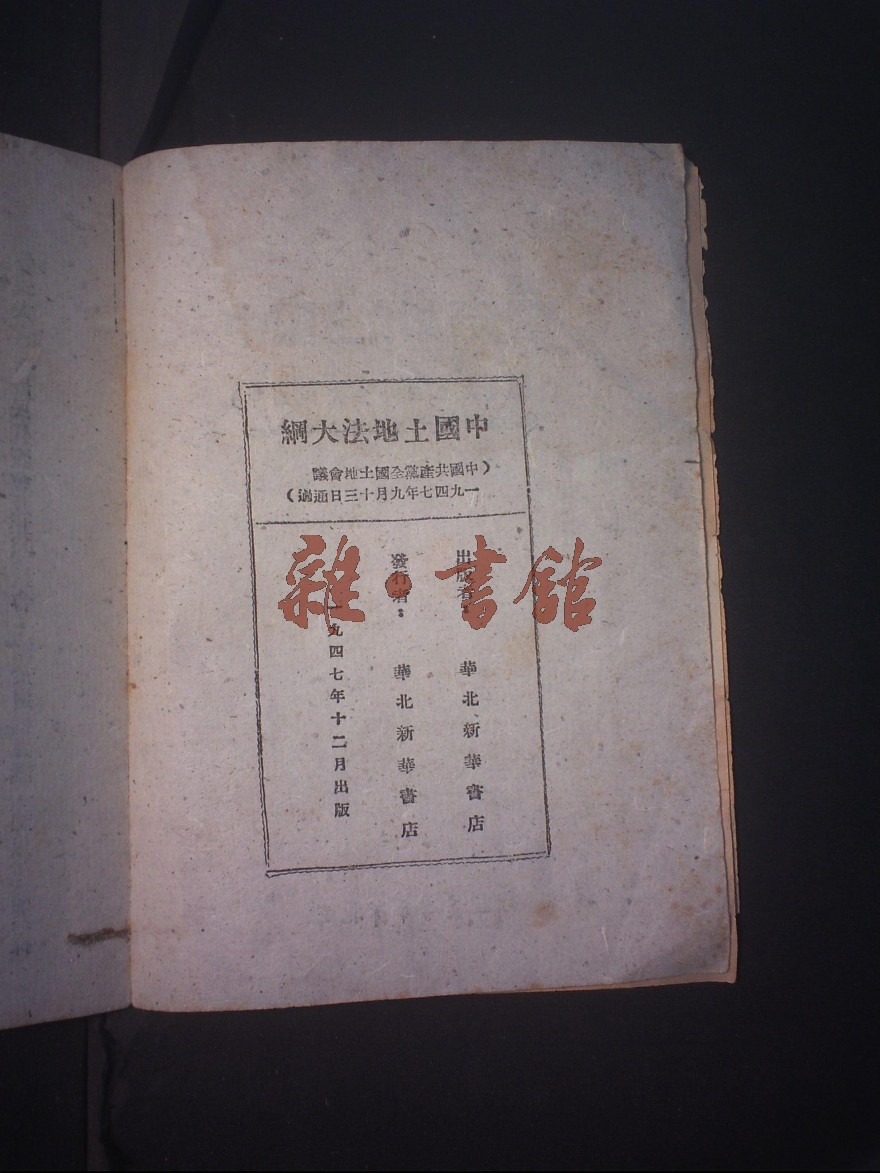 中國土地法大綱
（中國共產黨全國土地會議
一九四七年九月十三日通過）
出版者：　華北新華書店
發行者：　華北新華書店
一九四七年十二月出版
雜·書館